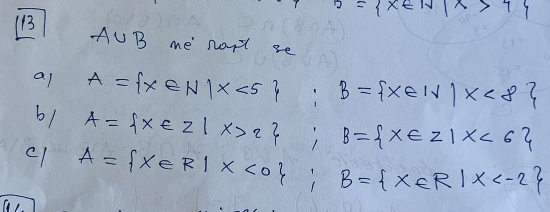 B = {x∈N | x > 4}
13
A∪B në rast se
a) A = {x∈N | x<5} ; B = {x∈N | x<8}
b) A = {x∈Z | x>2} ; B = {x∈Z | x<6}
c) A = {x∈R | x<0} ; B = {x∈R | x<-2}